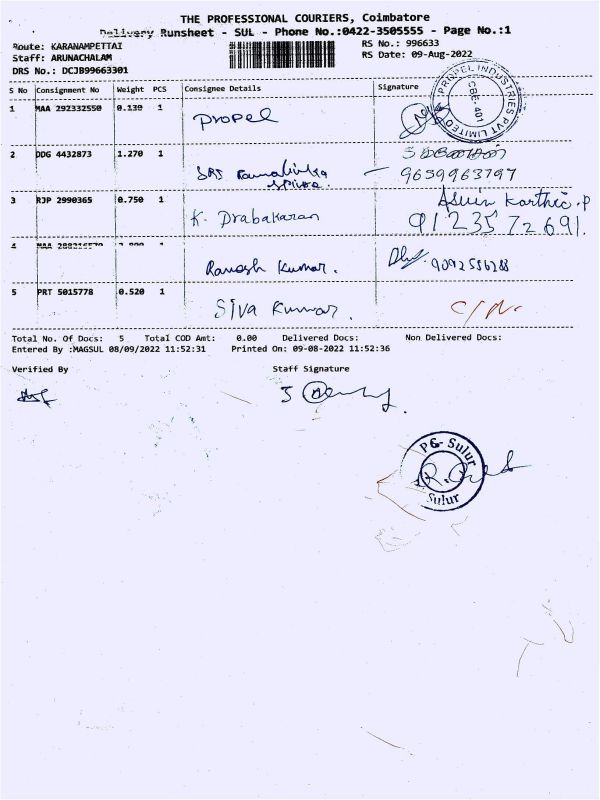 THE PROFESSIONAL COURIERS, Coimbatore
Delivery Runsheet - SUL - Phone No.:0422-3505555 - Page No.:1
Route: KARANAMPETTAI
RS No.: 996633
Staff: ARUNACHALAM
RS Date: 09-Aug-2022
DRS No.: DCJB99663301
S No Consignment No Weight PCS Consignee Details Signature
1 MAA 292332550 0.130 1 propel
PROPEL INDUSTRIES PVT LIMITED
CBE-401
2 DDG 4432873 1.270 1 SRS
9659963797
3 RJP 2990365 0.750 1 K. Prabakaran
Karthic.P
9123572691.
4 1 Ramesh Kumar.
5 PRT 5015778 0.520 1 Siva Kumar.
Total No. Of Docs: 5 Total COD Amt: 0.00 Delivered Docs: Non Delivered Docs:
Entered By :MAGSUL 08/09/2022 11:52:31 Printed On: 09-08-2022 11:52:36
Verified By Staff Signature
Sulur
Sulur